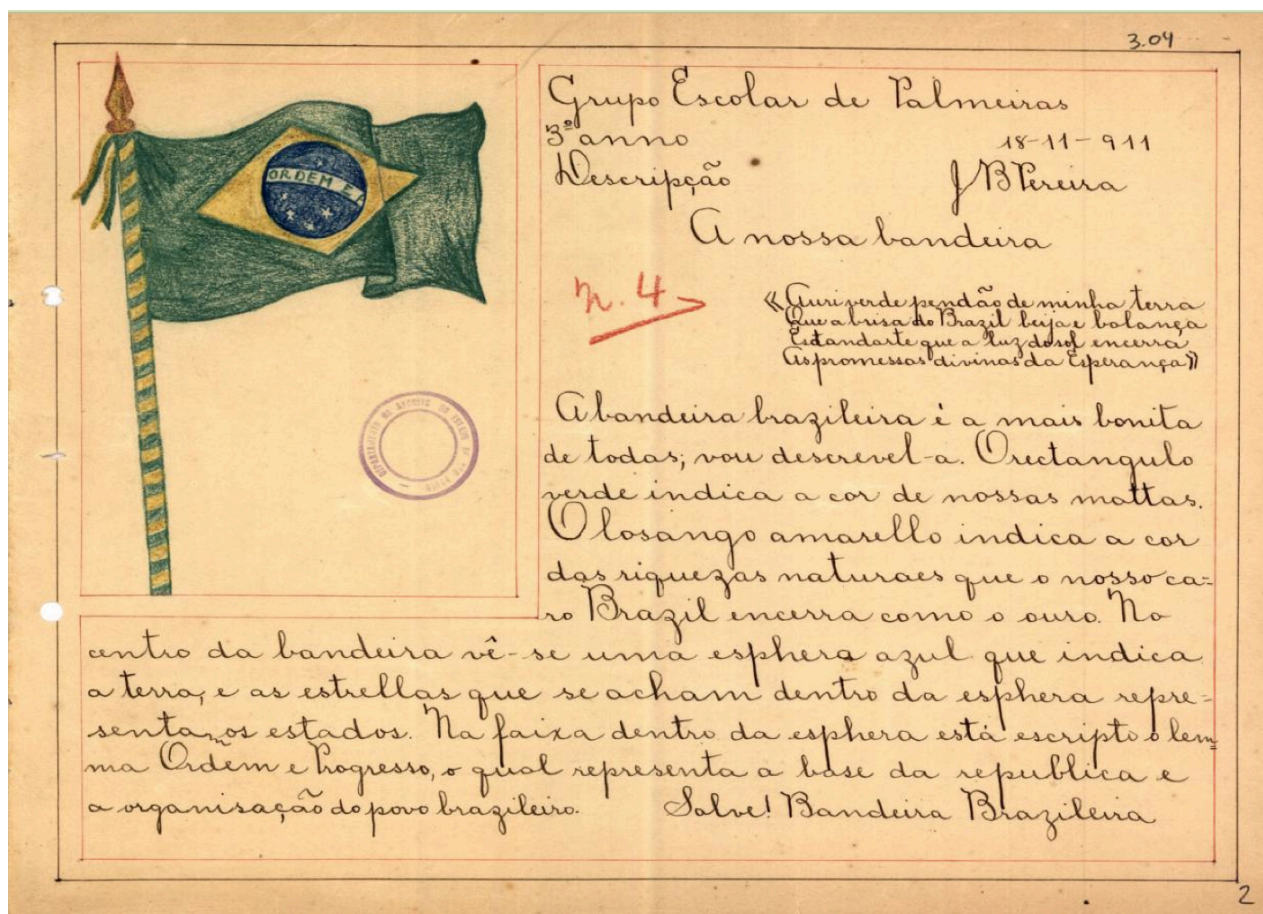 3.04
ORDEM E P
Grupo Escolar de Palmeiras
3º anno 18-11-911
Descripção J B Pereira
A nossa bandeira
n. 4
«Auri verde pendão de minha terra
Que a brisa do Brazil beija e balança
Estandarte que a luz do sol encerra
As promessas divinas da Esperança»
A bandeira brazileira é a mais bonita
de todas; vou descrevel-a. O rectangulo
verde indica a cor de nossas mattas.
O losango amarello indica a cor
das riquezas naturaes que o nosso ca-
ro Brazil encerra como o ouro. No
centro da bandeira vê-se uma esphera azul que indica
a terra, e as estrellas que se acham dentro da esphera repre-
sentam os estados. Na faixa dentro da esphera está escripto o lem-
ma Ordem e Progresso, o qual representa a base da republica e
a organisação do povo brazileiro. Salve! Bandeira Brazileira
DO ESTADO
2